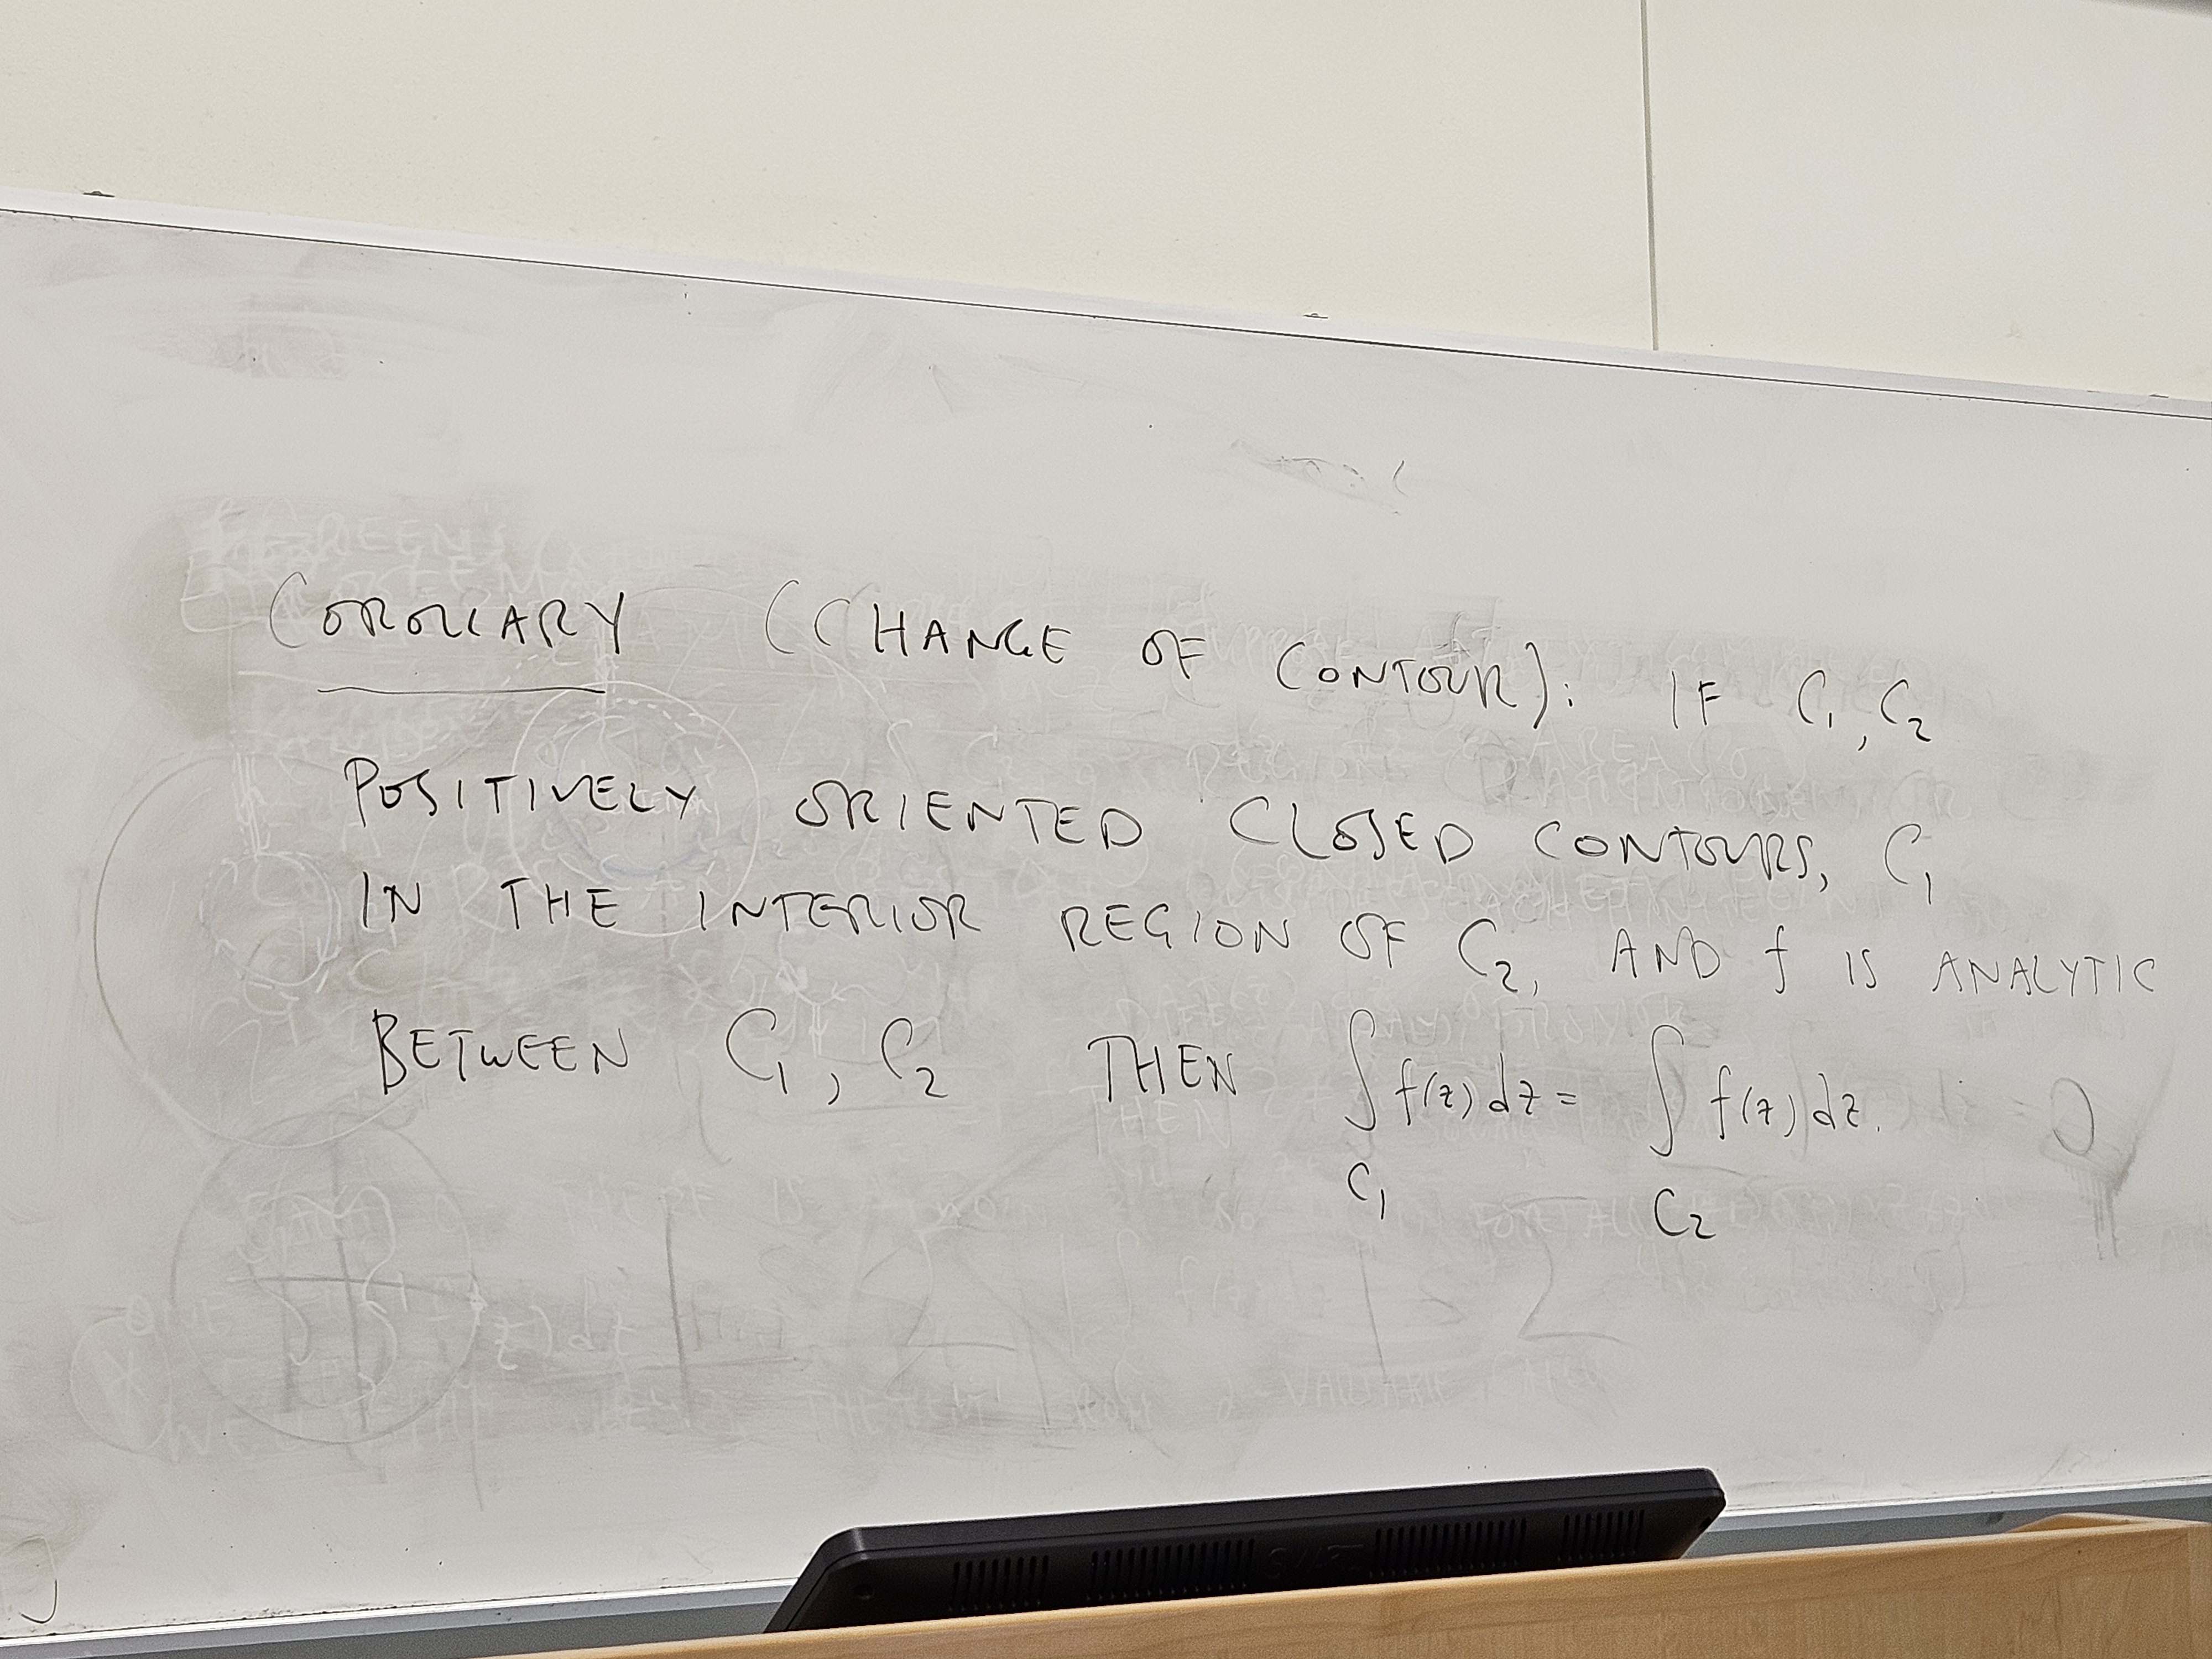 COROLLARY (CHANGE OF CONTOUR): IF C₁, C₂
POSITIVELY ORIENTED CLOSED CONTOURS, C₁
IN THE INTERIOR REGION OF C₂, AND f IS ANALYTIC
BETWEEN C₁, C₂ THEN ∫_{C₁} f(z) dz = ∫_{C₂} f(z) dz.